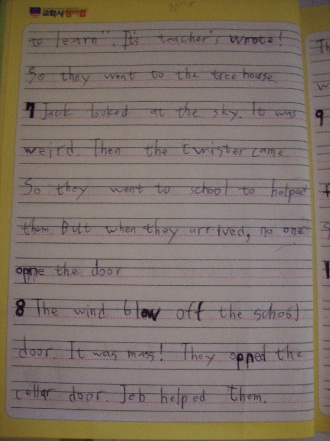 교학사
to learn". It's teacher's wrote!
So they went to the tree house.
7 Jack looked at the sky. It was
weird. Then the twister came.
So they went to school to helped
them. But when they arrived, no one
oppne the door
8 The wind blow off the school
door. It was mass! They opped the
cellar door. Jeb helped them.
9